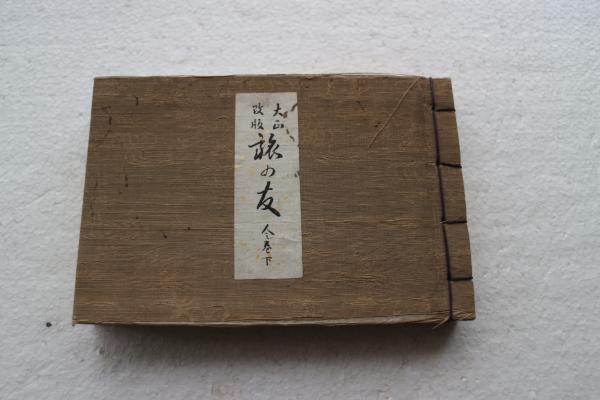 大正
改版
旅の友
全巻下